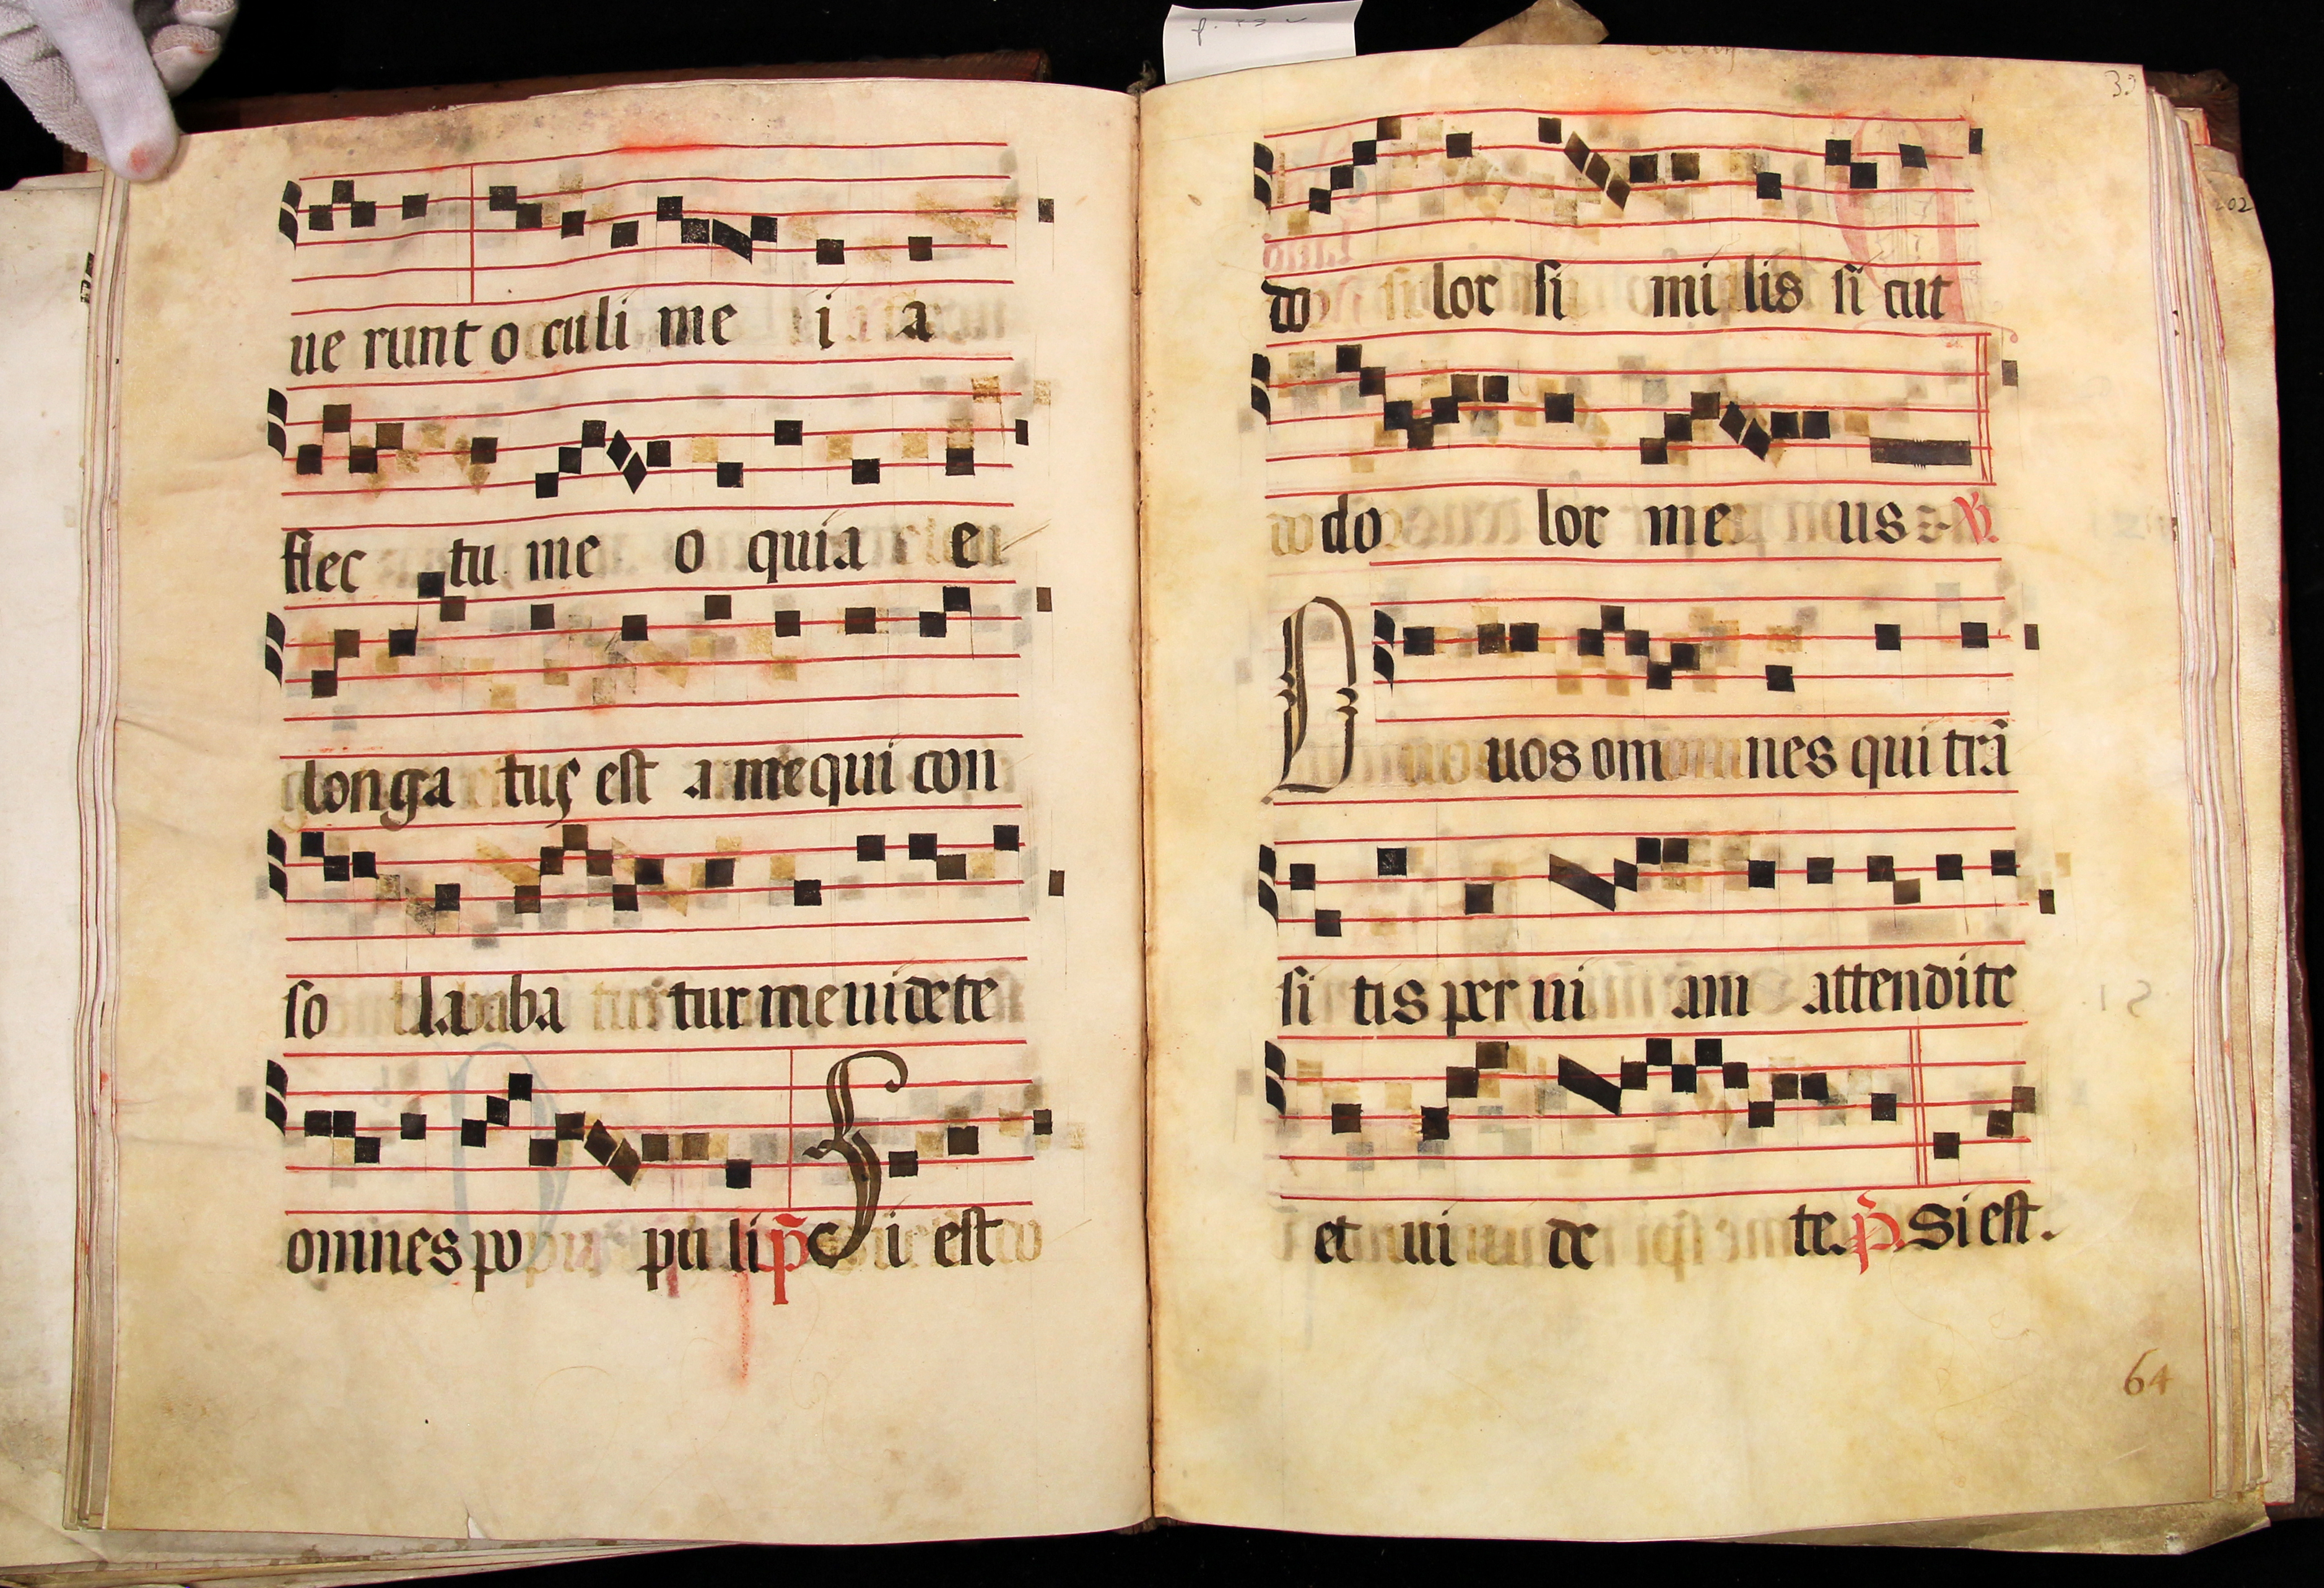 ue runt o culi me i a
flec tu me o quia e
longa tus est a me qui con
so laba tur me uidete
omnes po pu li p̃ Si est
33
do lor si milis si cut
do lor me us
O uos om nes qui trã
si tis per ui am attendite
et ui de te. p̃. Si est.
64
202